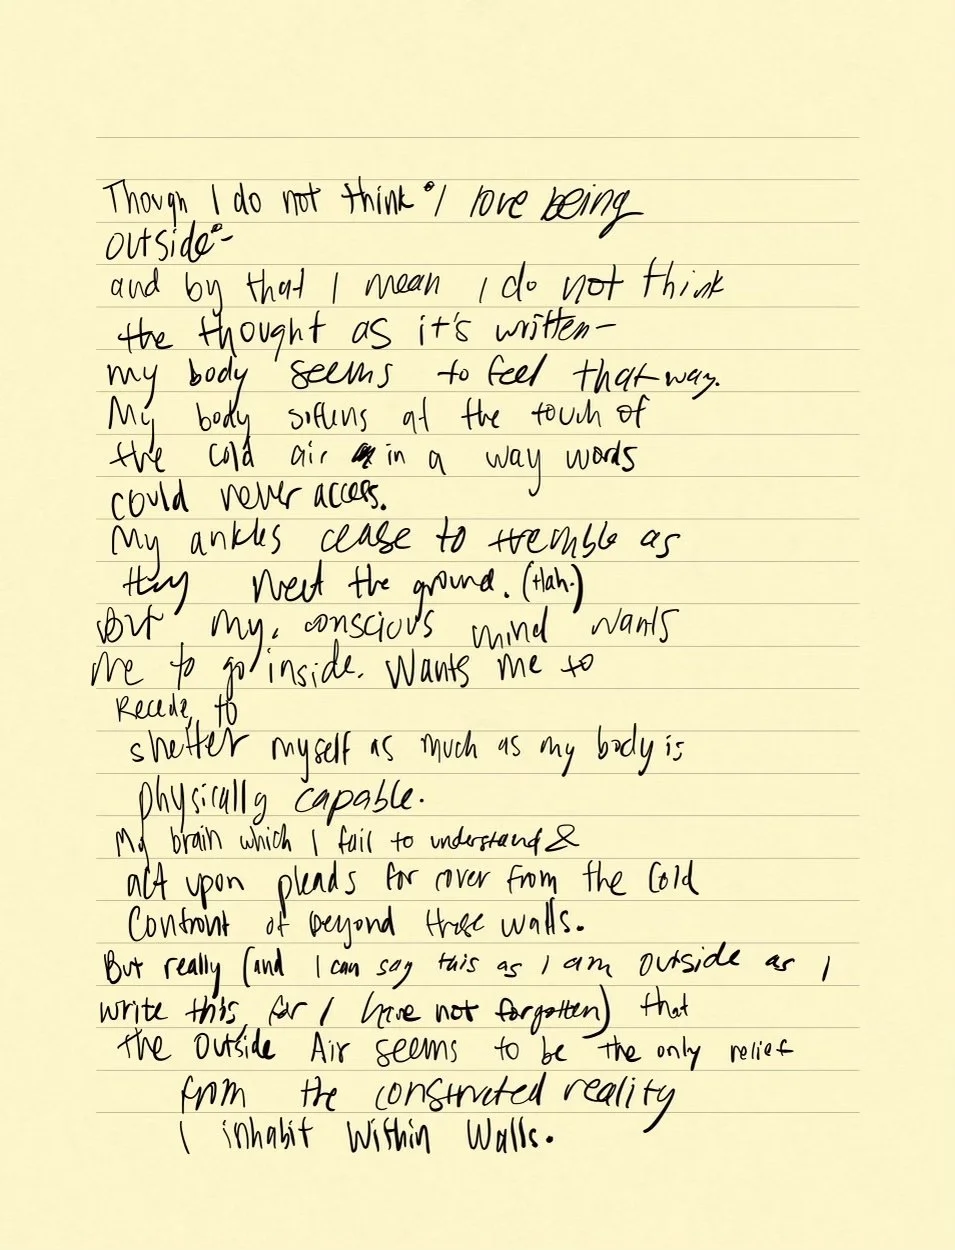 Though I do not think "I love being
outside"-
and by that I mean I do not think
the thought as it's written-
my body seems to feel that way.
My body softens at the touch of
the cold air in a way words
could never access.
My ankles cease to tremble as
they meet the ground.
But my conscious mind wants
me to go inside. Wants me to
Recede, to
shelter myself as much as my body is
physically capable.
My brain which I fail to understand &
act upon pleads for cover from the cold
Confront of beyond these walls.
But really (and I can say this as I am outside as I
write this, for I have not forgotten) that
the outside Air seems to be the only relief
from the constructed reality
I inhabit within walls.